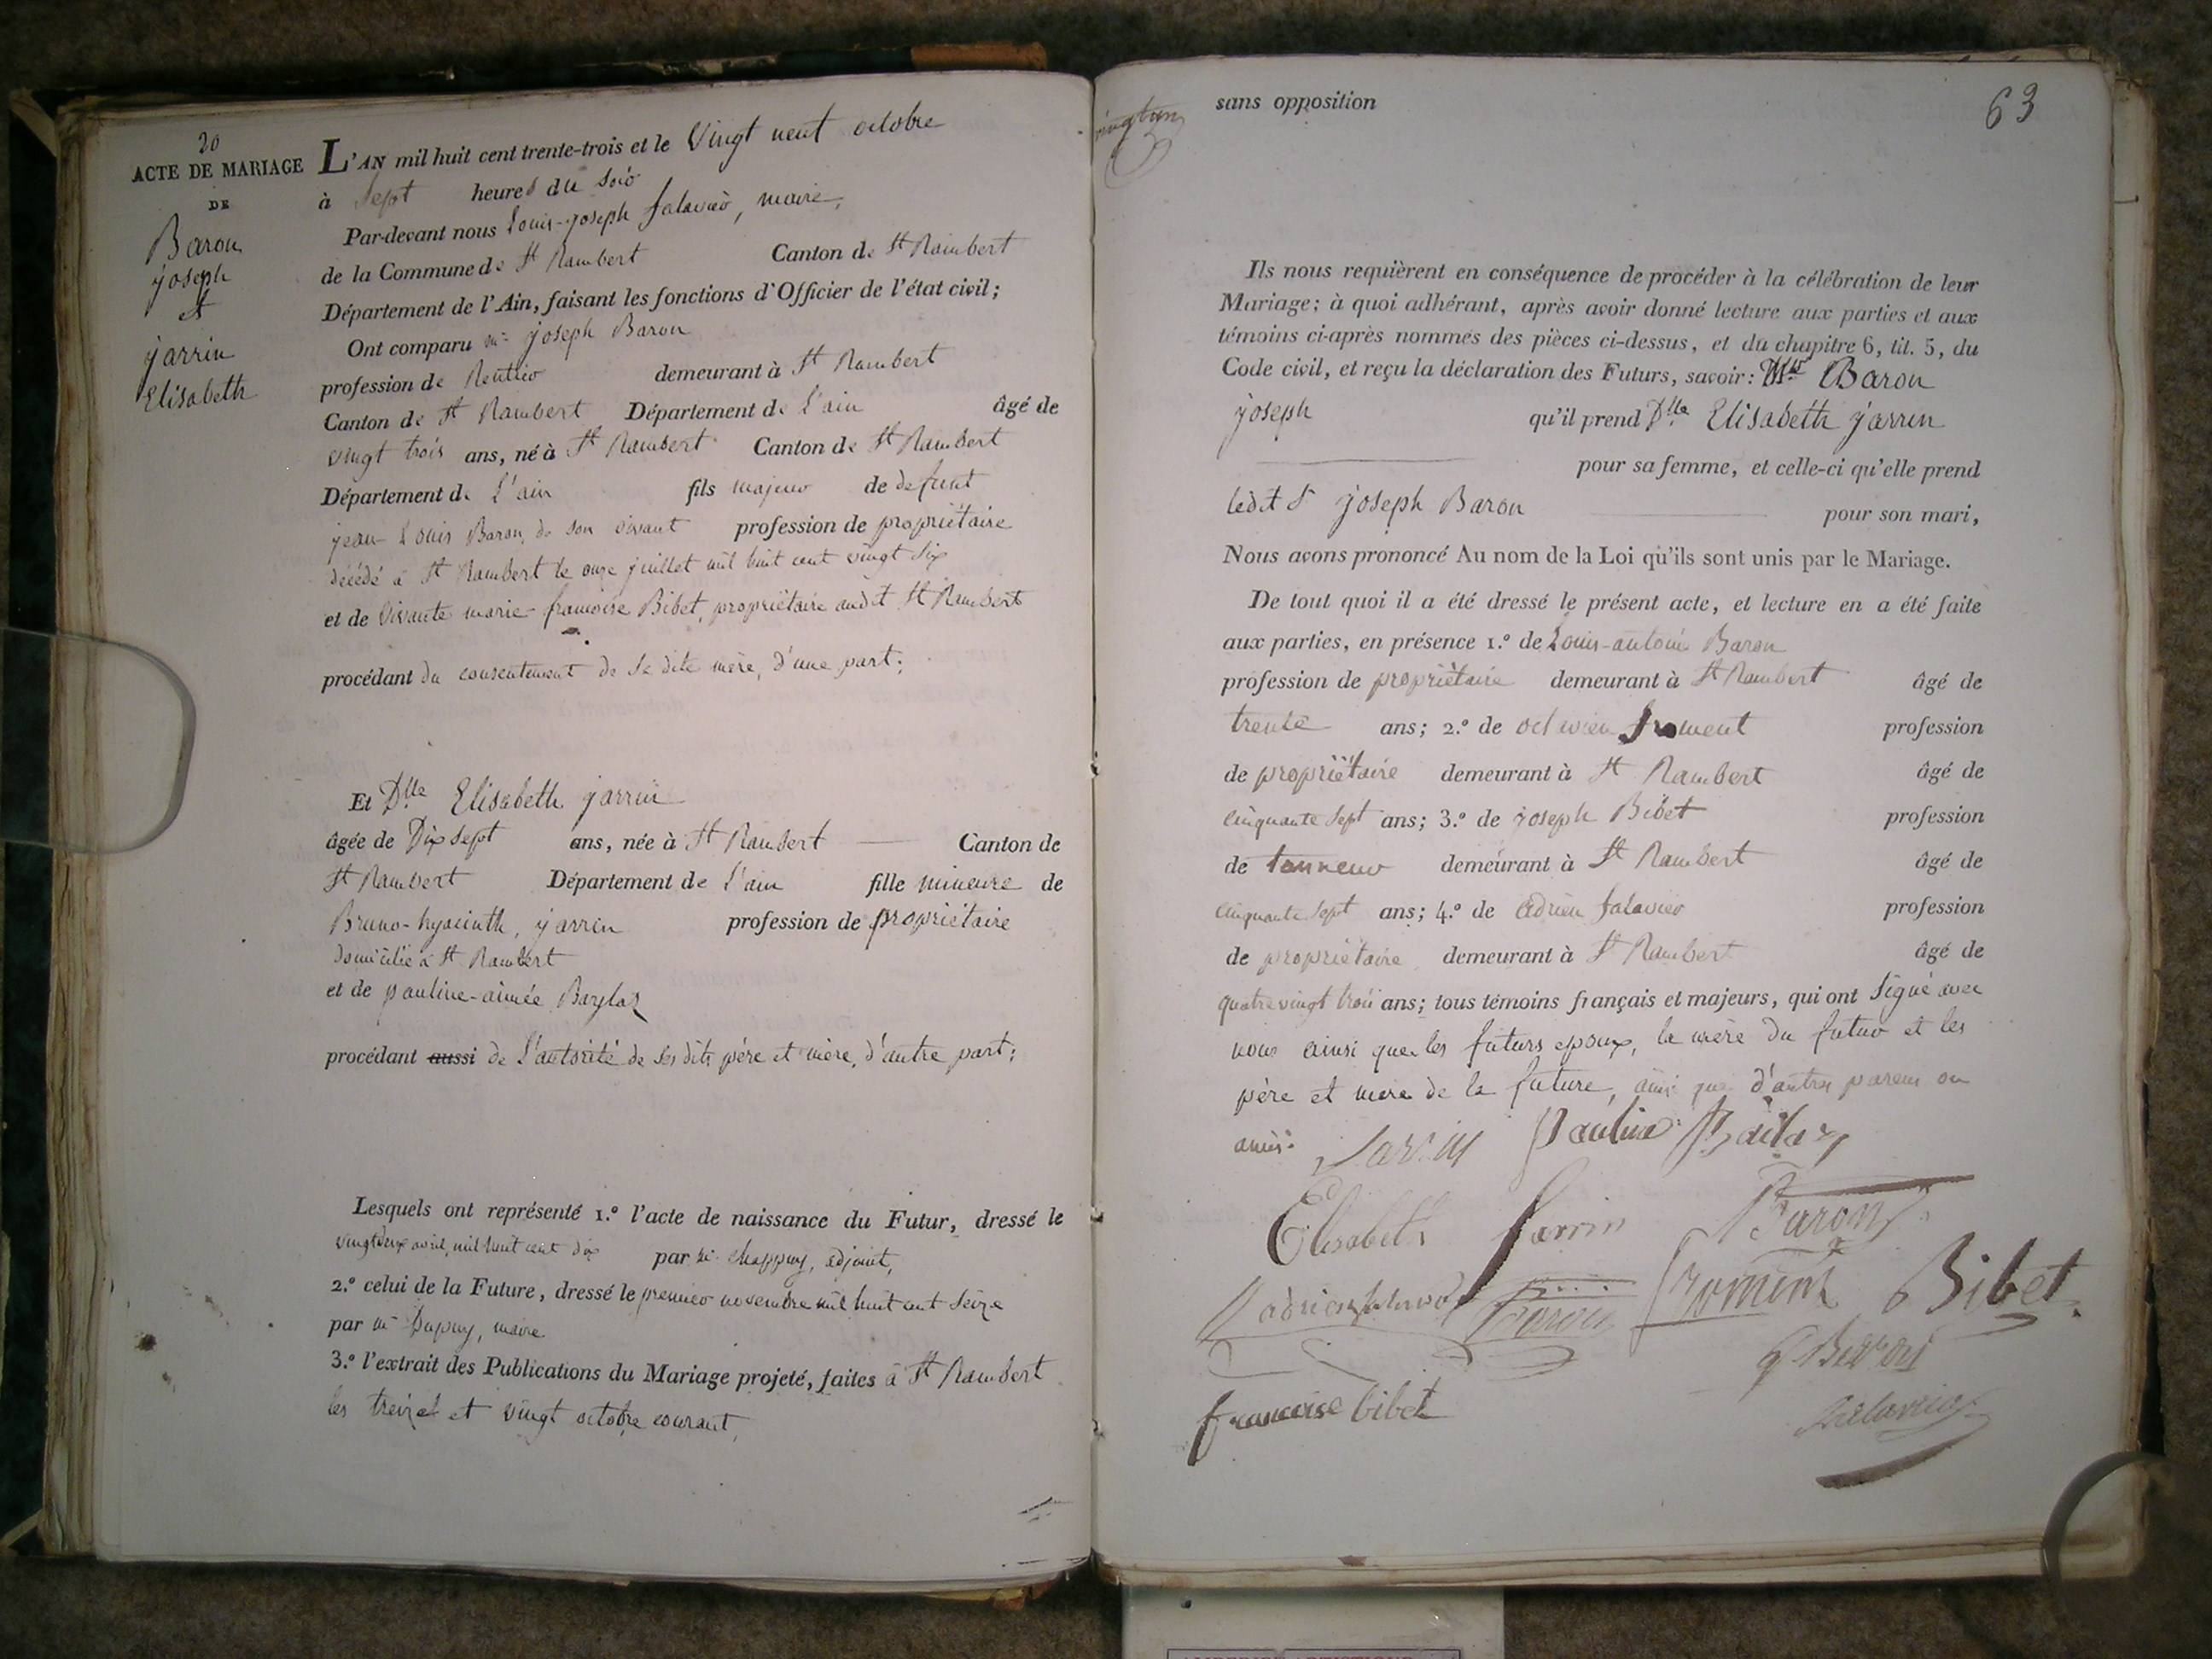 20
ACTE DE MARIAGE
DE
Baron
joseph
et
jarrin
Elisabeth
L'AN mil huit cent trente-trois et le vingt neuf octobre
à Sept heures du soir
Par-devant nous Louis-joseph falavier, maire,
de la Commune de St Rambert Canton de St Rambert
Département de l'Ain, faisant les fonctions d'Officier de l'état civil;
Ont comparu mr joseph Baron
profession de Rentier demeurant à St Rambert
Canton de St Rambert Département de L'ain âgé de
vingt trois ans, né à St Rambert Canton de St Rambert
Département de L'ain fils majeur de defunt
jean-Louis Baron, de son vivant profession de propriétaire
décédé à St Rambert le onze juillet mil huit cent vingt six
et de vivante marie-francoise Bibet, propriétaire audit St Rambert
procédant du consentement de sa dite mère, d'une part;
Et Dlle Elisabeth jarrin
âgée de Dix sept ans, née à St Rambert Canton de
St Rambert Département de L'ain fille mineure de
Bruno-hyacinth, jarrin profession de propriétaire
domicilié à St Rambert
et de pauline-aimée Baylaz
procédant aussi de L'autorité de ses dits père et mère, d'autre part;
Lesquels ont représenté 1.° l'acte de naissance du Futur, dressé le
vingt deux avril, mil huit cent dix par mr chappuy, adjoint,
2.° celui de la Future, dressé le premier novembre mil huit cent seize
par mr Dupuy, maire
3.° l'extrait des Publications du Mariage projeté, faites à St Rambert
les treize et vingt octobre courant,
63
sans opposition
Ils nous requièrent en conséquence de procéder à la célébration de leur
Mariage; à quoi adhérant, après avoir donné lecture aux parties et aux
témoins ci-après nommés des pièces ci-dessus, et du chapitre 6, tit. 5, du
Code civil, et reçu la déclaration des Futurs, savoir: Baron
joseph qu'il prend Dlle Elisabeth jarrin
pour sa femme, et celle-ci qu'elle prend
ledit Sr joseph Baron pour son mari,
Nous avons prononcé Au nom de la Loi qu'ils sont unis par le Mariage.
De tout quoi il a été dressé le présent acte, et lecture en a été faite
aux parties, en présence 1.° de Louis-antoine Baron
profession de propriétaire demeurant à St Rambert âgé de
trente ans; 2.° de froment profession
de propriétaire demeurant à St Rambert âgé de
cinquante sept ans; 3.° de joseph Bibet profession
de tanneur demeurant à St Rambert âgé de
cinquante sept ans; 4.° de adrien falavier profession
de propriétaire demeurant à St Rambert âgé de
quatre vingt trois ans; tous témoins français et majeurs, qui ont signé avec
nous ainsi que les futurs epoux, la mère du futur et les
père et mère de la future, ainsi que d'autres parens ou
amis.
Jarrin Pauline Bailaz
Elisabeth Jarrin Baron
adrien falavier Baron froment Bibet
francoise bibet
falavier